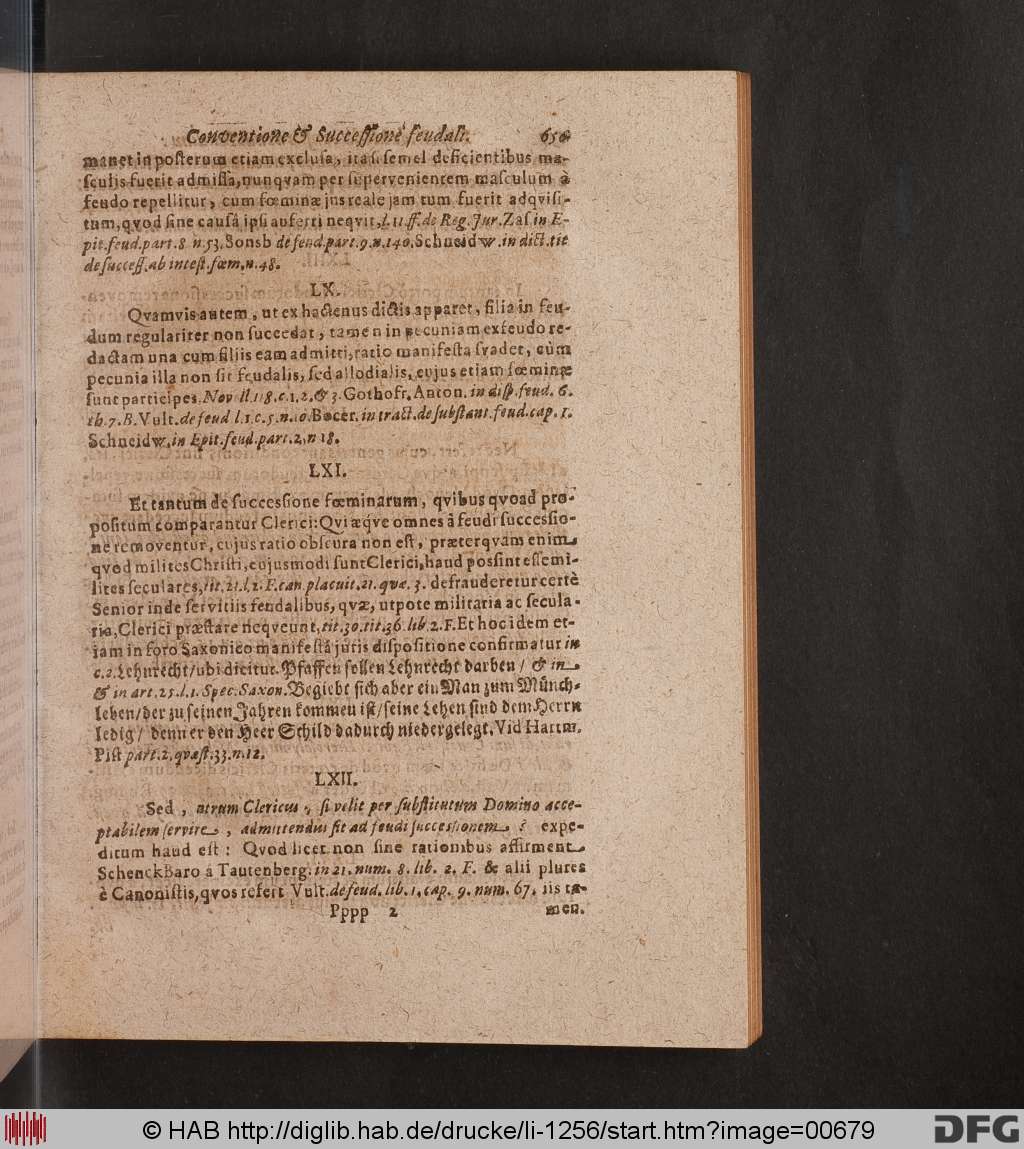 Conventione & Successione feudali. 650
manet in posterum etiam exclusa, ita si semel deficientibus ma-
sculis fuerit admissa, nunqvam per supervenientem masculum à
feudo repellitur, cum fœminæ jus reale jam tum fuerit adqvisi-
tum, qvod sine causâ ipsi auferri neqvit, l. 11. ff. de Reg. Jur. Zas. in E-
pit. feud. part. 8. n. 53. Sonsb. de feud. part. 9. n. 140. Schneidw. in dict. tit
de success. ab intest. fœm. n. 48.
LX.
Qvamvis autem, ut ex hactenus dictis apparet, filia in feu-
dum regulariter non succedat, tamen in pecuniam ex feudo re-
dactam una cum filiis eam admitti, ratio manifesta svadet, cùm
pecunia illa non sit feudalis, sed allodialis, cujus etiam fœminæ
sunt participes. Novell. 118. c. 1. 2. & 3. Gothofr. Anton. in disp. feud. 6.
th. 7. B. Vult. de feud l. 1. c. 5. n. 10. Bocer. in tract. de substant. feud. cap. 1.
Schneidw. in Epit. feud. part. 2. n 18.
LXI.
Et tantum de successione fœminarum, qvibus qvoad pro-
positum comparantur Clerici: Qui æqve omnes à feudi successio-
ne removentur, cujus ratio obscura non est, præterqvam enim
qvod milites Christi, cujusmodi sunt Clerici, haud possint esse mi-
lites seculares, tit. 21. l. 2. F. can. placuit. 21. quæ. 3. defrauderetur certè
Senior inde servitiis feudalibus, qvæ, utpote militaria ac secula-
ria, Clerici præstare neqveunt, tit. 30. tit. 36. lib. 2. F. Et hoc idem et-
iam in foro Saxonico manifestâ juris dispositione confirmatur in
c. 2. Lehnrecht/ ubi dicitur. Pfaffen sollen Lehnrecht darben/ & in
& in art. 25. l. 1. Spec. Saxon. Begiebt sich aber ein Man zum Münch-
leben/ der zu seinen Jahren kommen ist/ seine Lehen sind dem Herrn
ledig/ denn er den Heer Schild dadurch niedergelegt. Vid Hartm.
Pist part. 2. quæst. 33. n. 12.
LXII.
Sed, utrum Clericus, si velit per substitutum Domino acce-
ptabilem servire, admittendus sit ad feudi successionem? expe-
ditum haud est: Qvod licet non sine rationibus affirment
Schenck Baro à Tautenberg. in 21. num. 8. lib. 2. F. & alii plures
è Canonistis, qvos refert Vult. de feud. lib. 1. cap. 9. num. 67. iis ta-
Pppp 2 men.
© HAB http://diglib.hab.de/drucke/li-1256/start.htm?image=00679
DFG